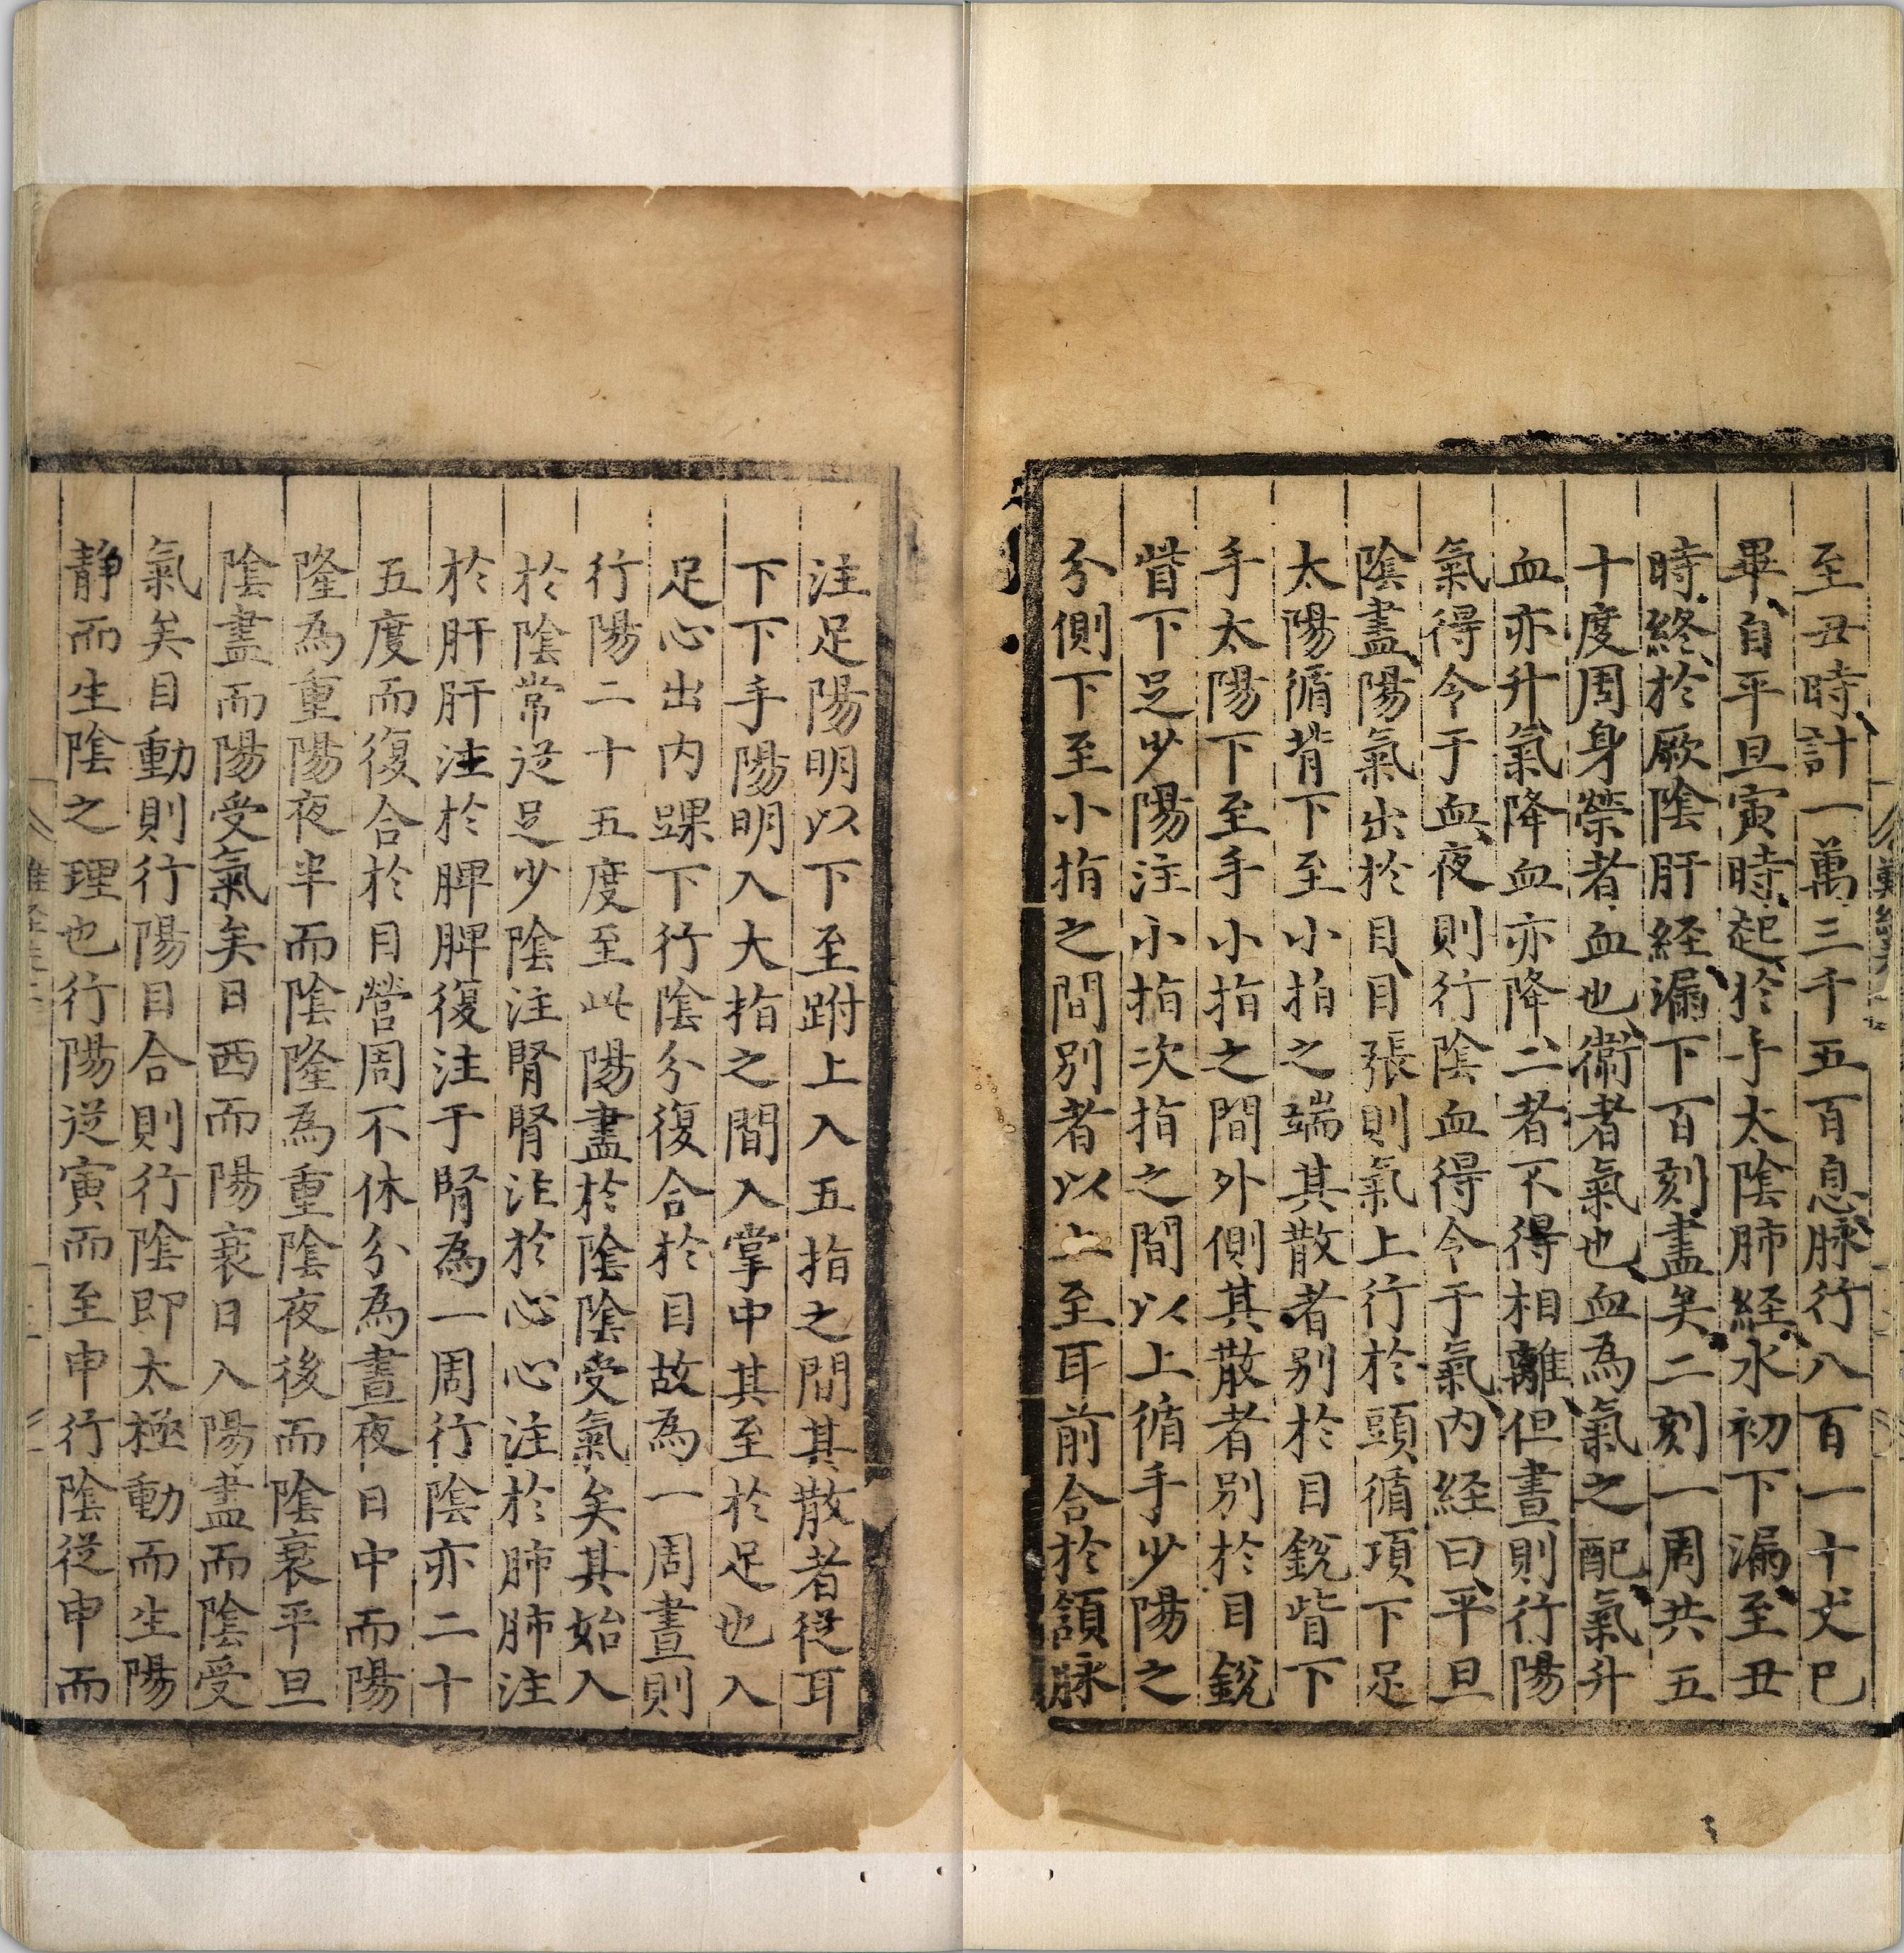 至丑時計一萬三千五百息脉行八百一十丈巳
畢自平旦寅時起於手太陰肺経水初下漏至丑
時終於厥陰肝経漏下百刻盡矣二刻一周共五
十度周身榮者血也衛者氣也血為氣之配氣升
血亦升氣降血亦降二者不得相離但晝則行陽
氣得令于血夜則行陰血得令于氣内経曰平旦
陰盡陽氣出於目目張則氣上行於頭循項下足
太陽循背下至小指之端其散者别於目銳眥下
手太陽下至手小指之間外側其散者别於目銳
眥下足少陽注小指次指之間以上循手少陽之
分側下至小指之間别者以上至耳前合於頷脉
注足陽明以下至跗上入五指之間其散者從耳
下下手陽明入大指之間入掌中其至於足也入
足心出内踝下行陰分復合於目故為一周晝則
行陽二十五度至此陽盡於陰陰受氣矣其始入
於陰常從足少陰注腎腎注於心心注於肺肺注
於肝肝注於脾脾復注于腎為一周行陰亦二十
五度而復合於目營周不休分為晝夜日中而陽
隆為重陽夜半而陰隆為重陰夜後而陰衰平旦
陰盡而陽受氣矣日西而陽衰日入陽盡而陰受
氣矣目動則行陽目合則行陰即太極動而生陽
静而生陰之理也行陽從寅而至申行陰從申而